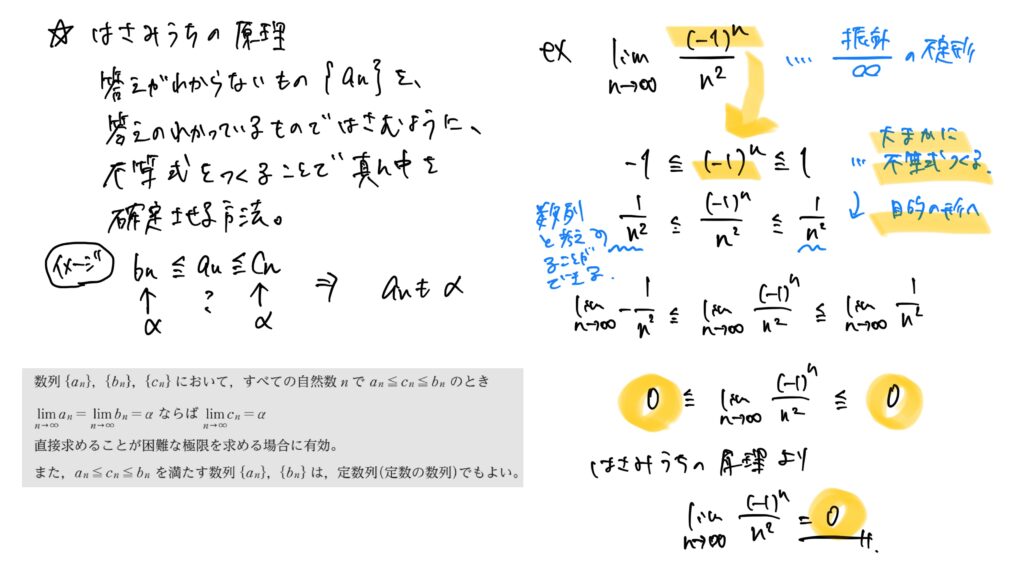 ☆ はさみうちの原理
答えがわからないもの {an} を、
答えのわかっているものではさむように、
不等式をつくることで真ん中を
確定させる方法。
イメージ
bn ≦ an ≦ cn ⇒ anも α
↑ ? ↑
α α
数列 {aₙ}，{bₙ}，{cₙ} において，すべての自然数 n で aₙ≦cₙ≦bₙ のとき
lim[n→∞] aₙ = lim[n→∞] bₙ = α ならば lim[n→∞] cₙ = α
直接求めることが困難な極限を求める場合に有効。
また，aₙ≦cₙ≦bₙ を満たす数列 {aₙ}，{bₙ} は，定数列(定数の数列)でもよい。
ex lim[n→∞] (-1)ⁿ/n² …… 振動/∞ の不定形
-1 ≦ (-1)ⁿ ≦ 1 … 大まかに
不等式つくる.
1/n² ≦ (-1)ⁿ/n² ≦ 1/n² ↓ 目的の形へ
数列
と考え
ることが
できる.
lim[n→∞] -1/n² ≦ lim[n→∞] (-1)ⁿ/n² ≦ lim[n→∞] 1/n²
0 ≦ lim[n→∞] (-1)ⁿ/n² ≦ 0
はさみうちの原理より
lim[n→∞] (-1)ⁿ/n² = 0